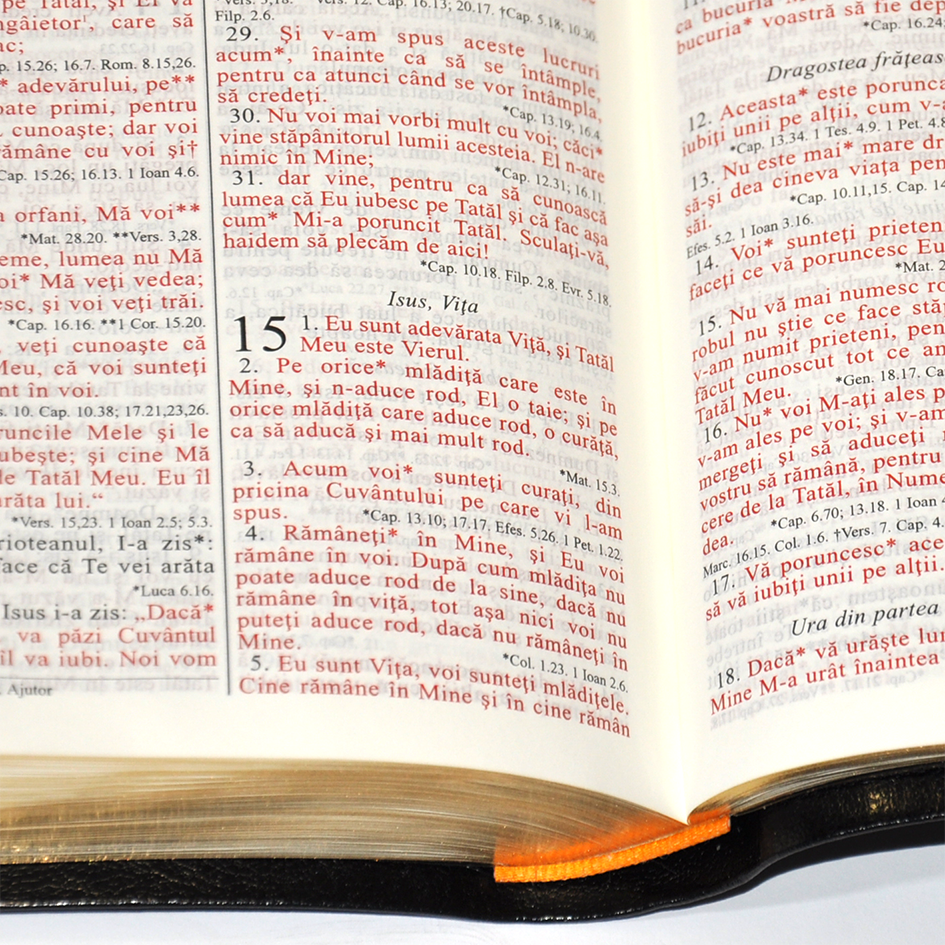 pe Tatăl, și El vă
ngâietor', care să
ac;
p. 15.26; 16.7. Rom. 8.15,26.
* adevărului, pe**
oate primi, pentru
cunoaște; dar voi
rămâne cu voi și†
Cap. 15.26; 16.13. 1 Ioan 4.6.
a orfani, Mă voi**
*Mat. 28.20. **Vers. 3,28.
eme, lumea nu Mă
oi* Mă veți vedea;
esc, și voi veți trăi.
*Cap. 16.16. **1 Cor. 15.20.
, veți cunoaște că
Meu, că voi sunteți
nt în voi.
s. 10. Cap. 10.38; 17.21,23,26.
runcile Mele și le
ubește; și cine Mă
de Tatăl Meu. Eu îl
arăta lui.“
*Vers. 15,23. 1 Ioan 2.5; 5.3.
rioteanul, I-a zis*:
face că Te vei arăta
*Luca 6.16.
Isus i-a zis: „Dacă*
va păzi Cuvântul
îl va iubi. Noi vom
Ajutor
Vers. 12. Cap. 16.13; 20.17. †Cap. 5.18; 10.30.
Filp. 2.6.
29. Și v-am spus aceste lucruri
acum*, înainte ca să se întâmple,
pentru ca atunci când se vor întâmpla,
să credeți.
*Cap. 13.19; 16.4.
30. Nu voi mai vorbi mult cu voi; căci*
vine stăpânitorul lumii acesteia. El n-are
nimic în Mine;
*Cap. 12.31; 16.11.
31. dar vine, pentru ca să cunoască
lumea că Eu iubesc pe Tatăl și că fac așa
cum* Mi-a poruncit Tatăl. Sculați-vă,
haidem să plecăm de aici!
*Cap. 10.18. Filp. 2.8. Evr. 5.18.
Isus, Vița
15 1. Eu sunt adevărata Viță, și Tatăl
Meu este Vierul.
2. Pe orice* mlădiță care este în
Mine, și n-aduce rod, El o taie; și pe
orice mlădiță care aduce rod, o curăță,
ca să aducă și mai mult rod.
*Mat. 15.3.
3. Acum voi* sunteți curați, din
pricina Cuvântului pe care vi l-am
spus.
*Cap. 13.10; 17.17, Efes. 5.26. 1 Pet. 1.22.
4. Rămâneți* în Mine, și Eu voi
rămâne în voi. După cum mlădița nu
poate aduce rod de la sine, dacă nu
rămâne în viță, tot așa nici voi nu
puteți aduce rod, dacă nu rămâneți în
Mine.
*Col. 1.23. 1 Ioan 2.6.
5. Eu sunt Vița, voi sunteți mlădițele.
Cine rămâne în Mine și în cine rămân
ca bucuria M
bucuria* voastră să fie dep
*Cap. 16.24;
Dragostea frățeas
12. Aceasta* este porunca
iubiți unii pe alții, cum v-
*Cap. 13.34. 1 Tes. 4.9. 1 Pet. 4.8
13. Nu este mai* mare dr
să-și dea cineva viața pen
săi.
*Cap. 10.11,15. Cap. 14
Efes. 5.2. 1 Ioan 3.16.
14. Voi* sunteți prieten
faceți ce vă poruncesc Eu
*Mat. 2
15. Nu vă mai numesc ro
robul nu știe ce face stă
v-am numit prieteni, pent
făcut cunoscut tot ce am
Tatăl Meu.
*Gen. 18.17. Ca
16. Nu* voi M-ați ales p
v-am ales pe voi; și v-am
mergeți și să aduceți
vostru să rămână, pentru
cere de la Tatăl, în Nume
dea.
*Cap. 6.70; 13.18. 1 Ioan
Marc. 16.15. Col. 1.6. †Vers. 7. Cap. 4
17. Vă poruncesc* ace
să vă iubiți unii pe alții.
Ura din partea
18. Dacă* vă urăște lu
Mine M-a urât înaintea